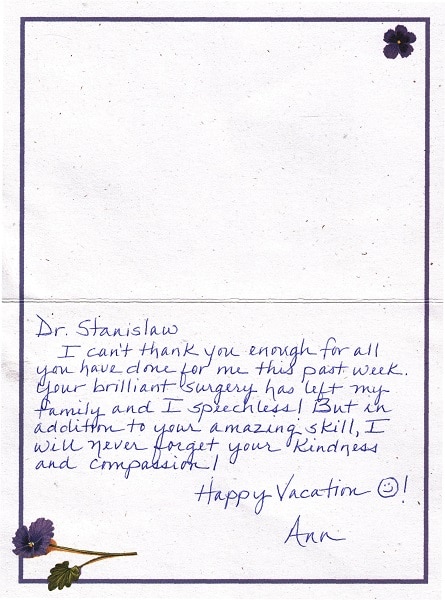 Dr. Stanislaw
I can't thank you enough for all
you have done for me this past week.
Your brilliant surgery has left my
family and I speechless! But in
addition to your amazing skill, I
will never forget your kindness
and compassion!
Happy Vacation ☺!
Ann